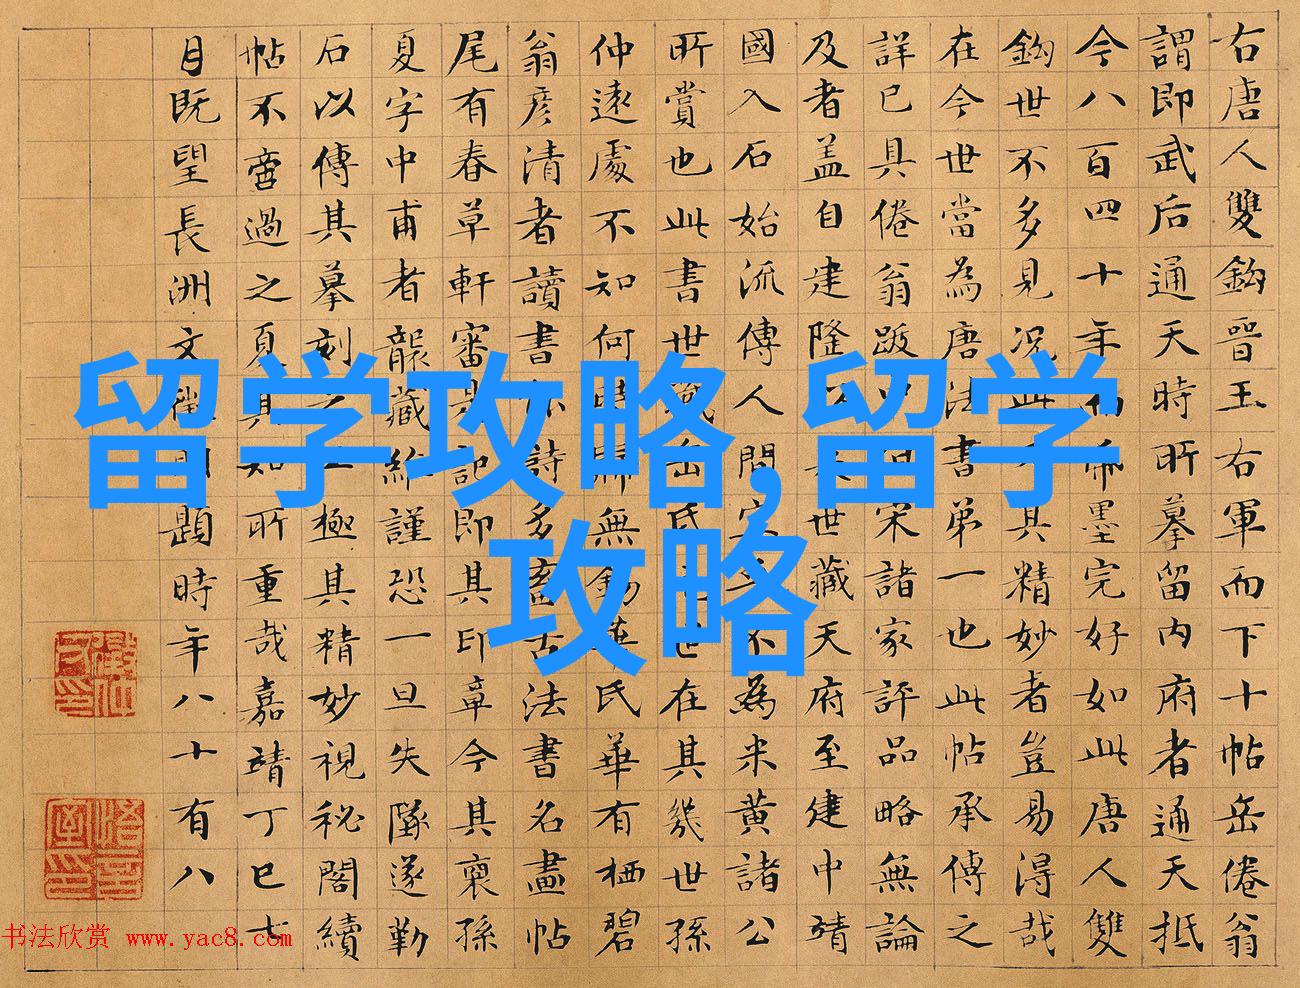 右唐人雙鈎晉王右軍而下十帖岳倦翁
謂即武后通天時所摹留內府者通天抵
今八百四十年墨完好如此唐人雙
鈎世不多見況其精妙者豈易得哉
在今世當為唐法書第一也此帖承傳之
詳已具倦翁跋宋諸家評品略無論
及者盖自建隆世藏天府至建中靖
國入石始流傳人間不為米黃諸公
所賞也此書世藏岳氏世在其幾世孫
仲遠處不知何時歸無錫華氏華有栖碧
翁彦清者讀書詩多畜古法書名畫帖
尾有春草軒審記即其印章今其裔孫
夏字中甫者襲藏謹恐一旦失墜遂勤
石以傳其摹刻極其精妙視秘閣續
帖不啻過之夏其知所重哉嘉靖丁巳七
月既望長洲文徵明題時年八十有八
留学攻略,留学
攻略
书法欣赏 www.yac8.com